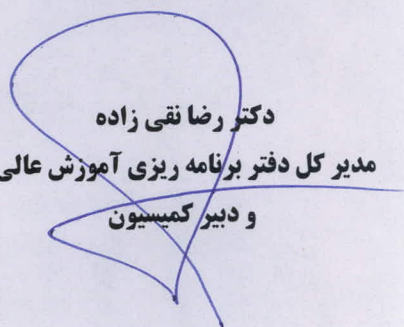 دکتر رضا نقی زاده
مدیر کل دفتر برنامه ریزی آموزش عالی
و دبیر کمیسیون